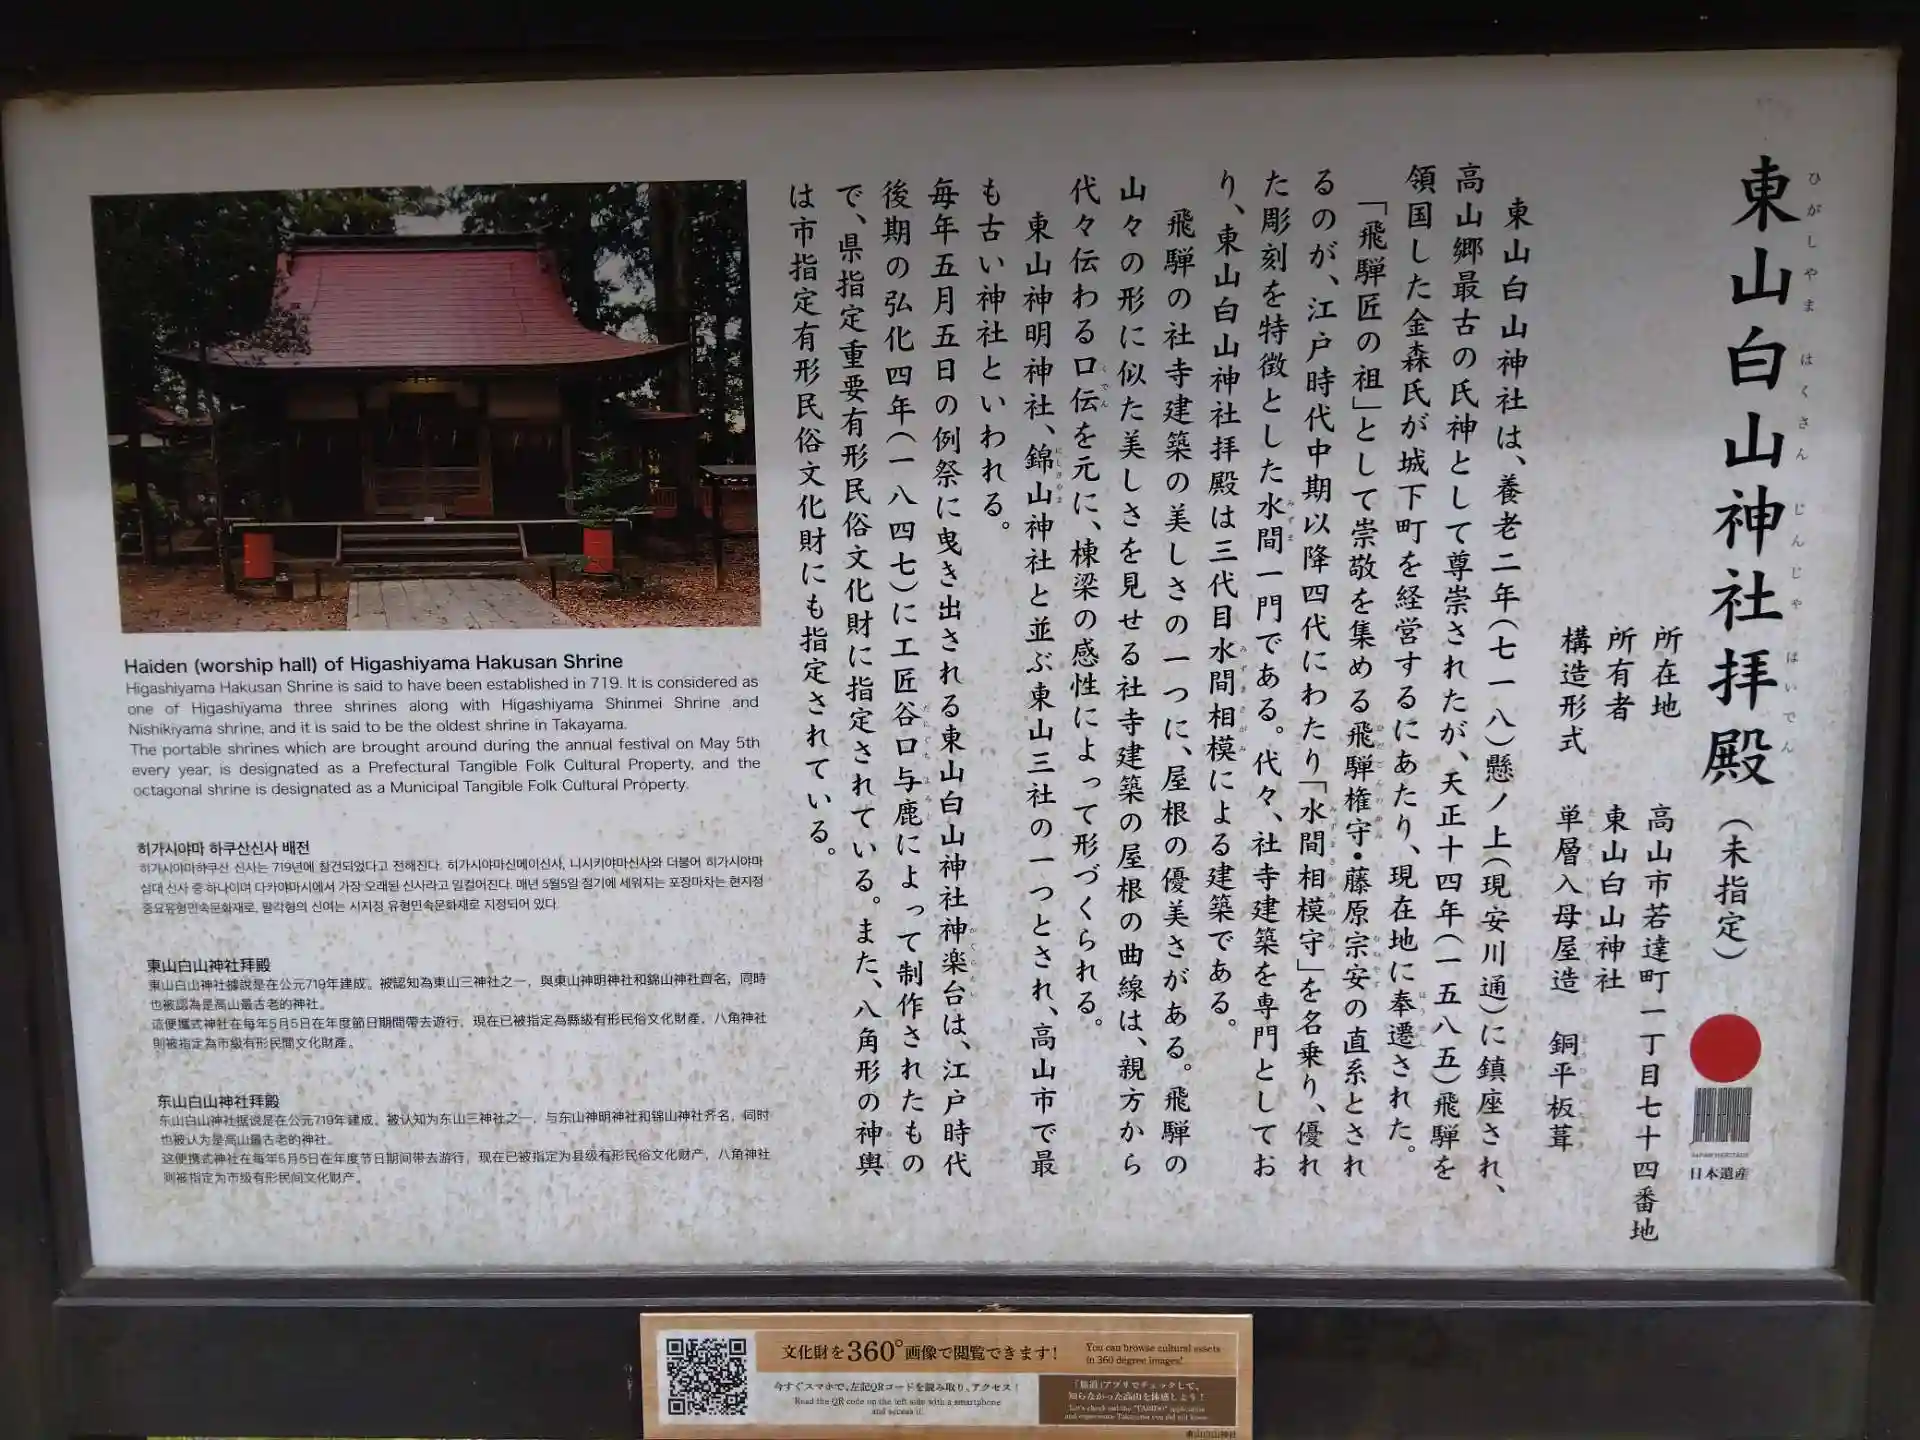 東山白山神社拝殿(未指定)
ひがしやま はくさん じんじゃ はいでん
所在地 高山市若達町一丁目七十四番地
所有者 東山白山神社
構造形式 単層入母屋造 銅平板葺
東山白山神社は、養老二年(七一八)懸ノ上(現安川通)に鎮座され、
高山郷最古の氏神として尊崇されたが、天正十四年(一五八五)飛騨を
領国した金森氏が城下町を経営するにあたり、現在地に奉遷された。
「飛騨匠の祖」として崇敬を集める飛騨権守・藤原宗安の直系とされ
るのが、江戸時代中期以降四代にわたり「水間相模守」を名乗り、優れ
た彫刻を特徴とした水間一門である。代々、社寺建築を専門としてお
り、東山白山神社拝殿は三代目水間相模による建築である。
飛騨の社寺建築の美しさの一つに、屋根の優美さがある。飛騨の
山々の形に似た美しさを見せる社寺建築の屋根の曲線は、親方から
代々伝わる口伝を元に、棟梁の感性によって形づくられる。
東山神明神社、錦山神社と並ぶ東山三社の一つとされ、高山市で最
も古い神社といわれる。
毎年五月五日の例祭に曳き出される東山白山神社神楽台は、江戸時代
後期の弘化四年(一八四七)に工匠谷口与鹿によって制作されたもの
で、県指定重要有形民俗文化財に指定されている。また、八角形の神輿
は市指定有形民俗文化財にも指定されている。
日本遺産
Haiden (worship hall) of Higashiyama Hakusan Shrine
Higashiyama Hakusan Shrine is said to have been established in 719. It is considered as
one of Higashiyama three shrines along with Higashiyama Shinmei Shrine and
Nishikiyama shrine, and it is said to be the oldest shrine in Takayama.
The portable shrines which are brought around during the annual festival on May 5th
every year, is designated as a Prefectural Tangible Folk Cultural Property, and the
octagonal shrine is designated as a Municipal Tangible Folk Cultural Property.
히가시야마 하쿠산신사 배전
히가시야마하쿠산 신사는 719년에 창건되었다고 전해진다. 히가시야마신메이신사, 니시키야마신사와 더불어 히가시야마
삼대 신사 중 하나이며 다카야마시에서 가장 오래된 신사라고 일컬어진다. 매년 5월5일 절기에 세워지는 포장마차는 현지정
중요유형민속문화재로, 팔각형의 신여는 시지정 유형민속문화재로 지정되어 있다.
東山白山神社拜殿
東山白山神社據說是在公元719年建成。被認知為東山三神社之一，與東山神明神社和錦山神社齊名，同時
也被認為是高山最古老的神社。
這便攜式神社在每年5月5日在年度節日期間帶去遊行，現在已被指定為縣級有形民俗文化財產，八角神社
則被指定為市級有形民間文化財產。
东山白山神社拜殿
东山白山神社据说是在公元719年建成。被认知为东山三神社之一，与东山神明神社和锦山神社齐名，同时
也被认为是高山最古老的神社。
这便携式神社在每年5月5日在年度节日期间带去游行，现在已被指定为县级有形民俗文化财产，八角神社
则被指定为市级有形民间文化财产。
文化財を360°画像で閲覧できます!
You can browse cultural assets
in 360 degree images!
今すぐスマホで、左記QRコードを読み取り、アクセス!
Read the QR code on the left side with a smartphone
and access it.
アプリでチェックして、
知らなかった高山を体感しよう!
Let's check out the "TABIDO" application
and experience Takayama you did not know.
東山白山神社